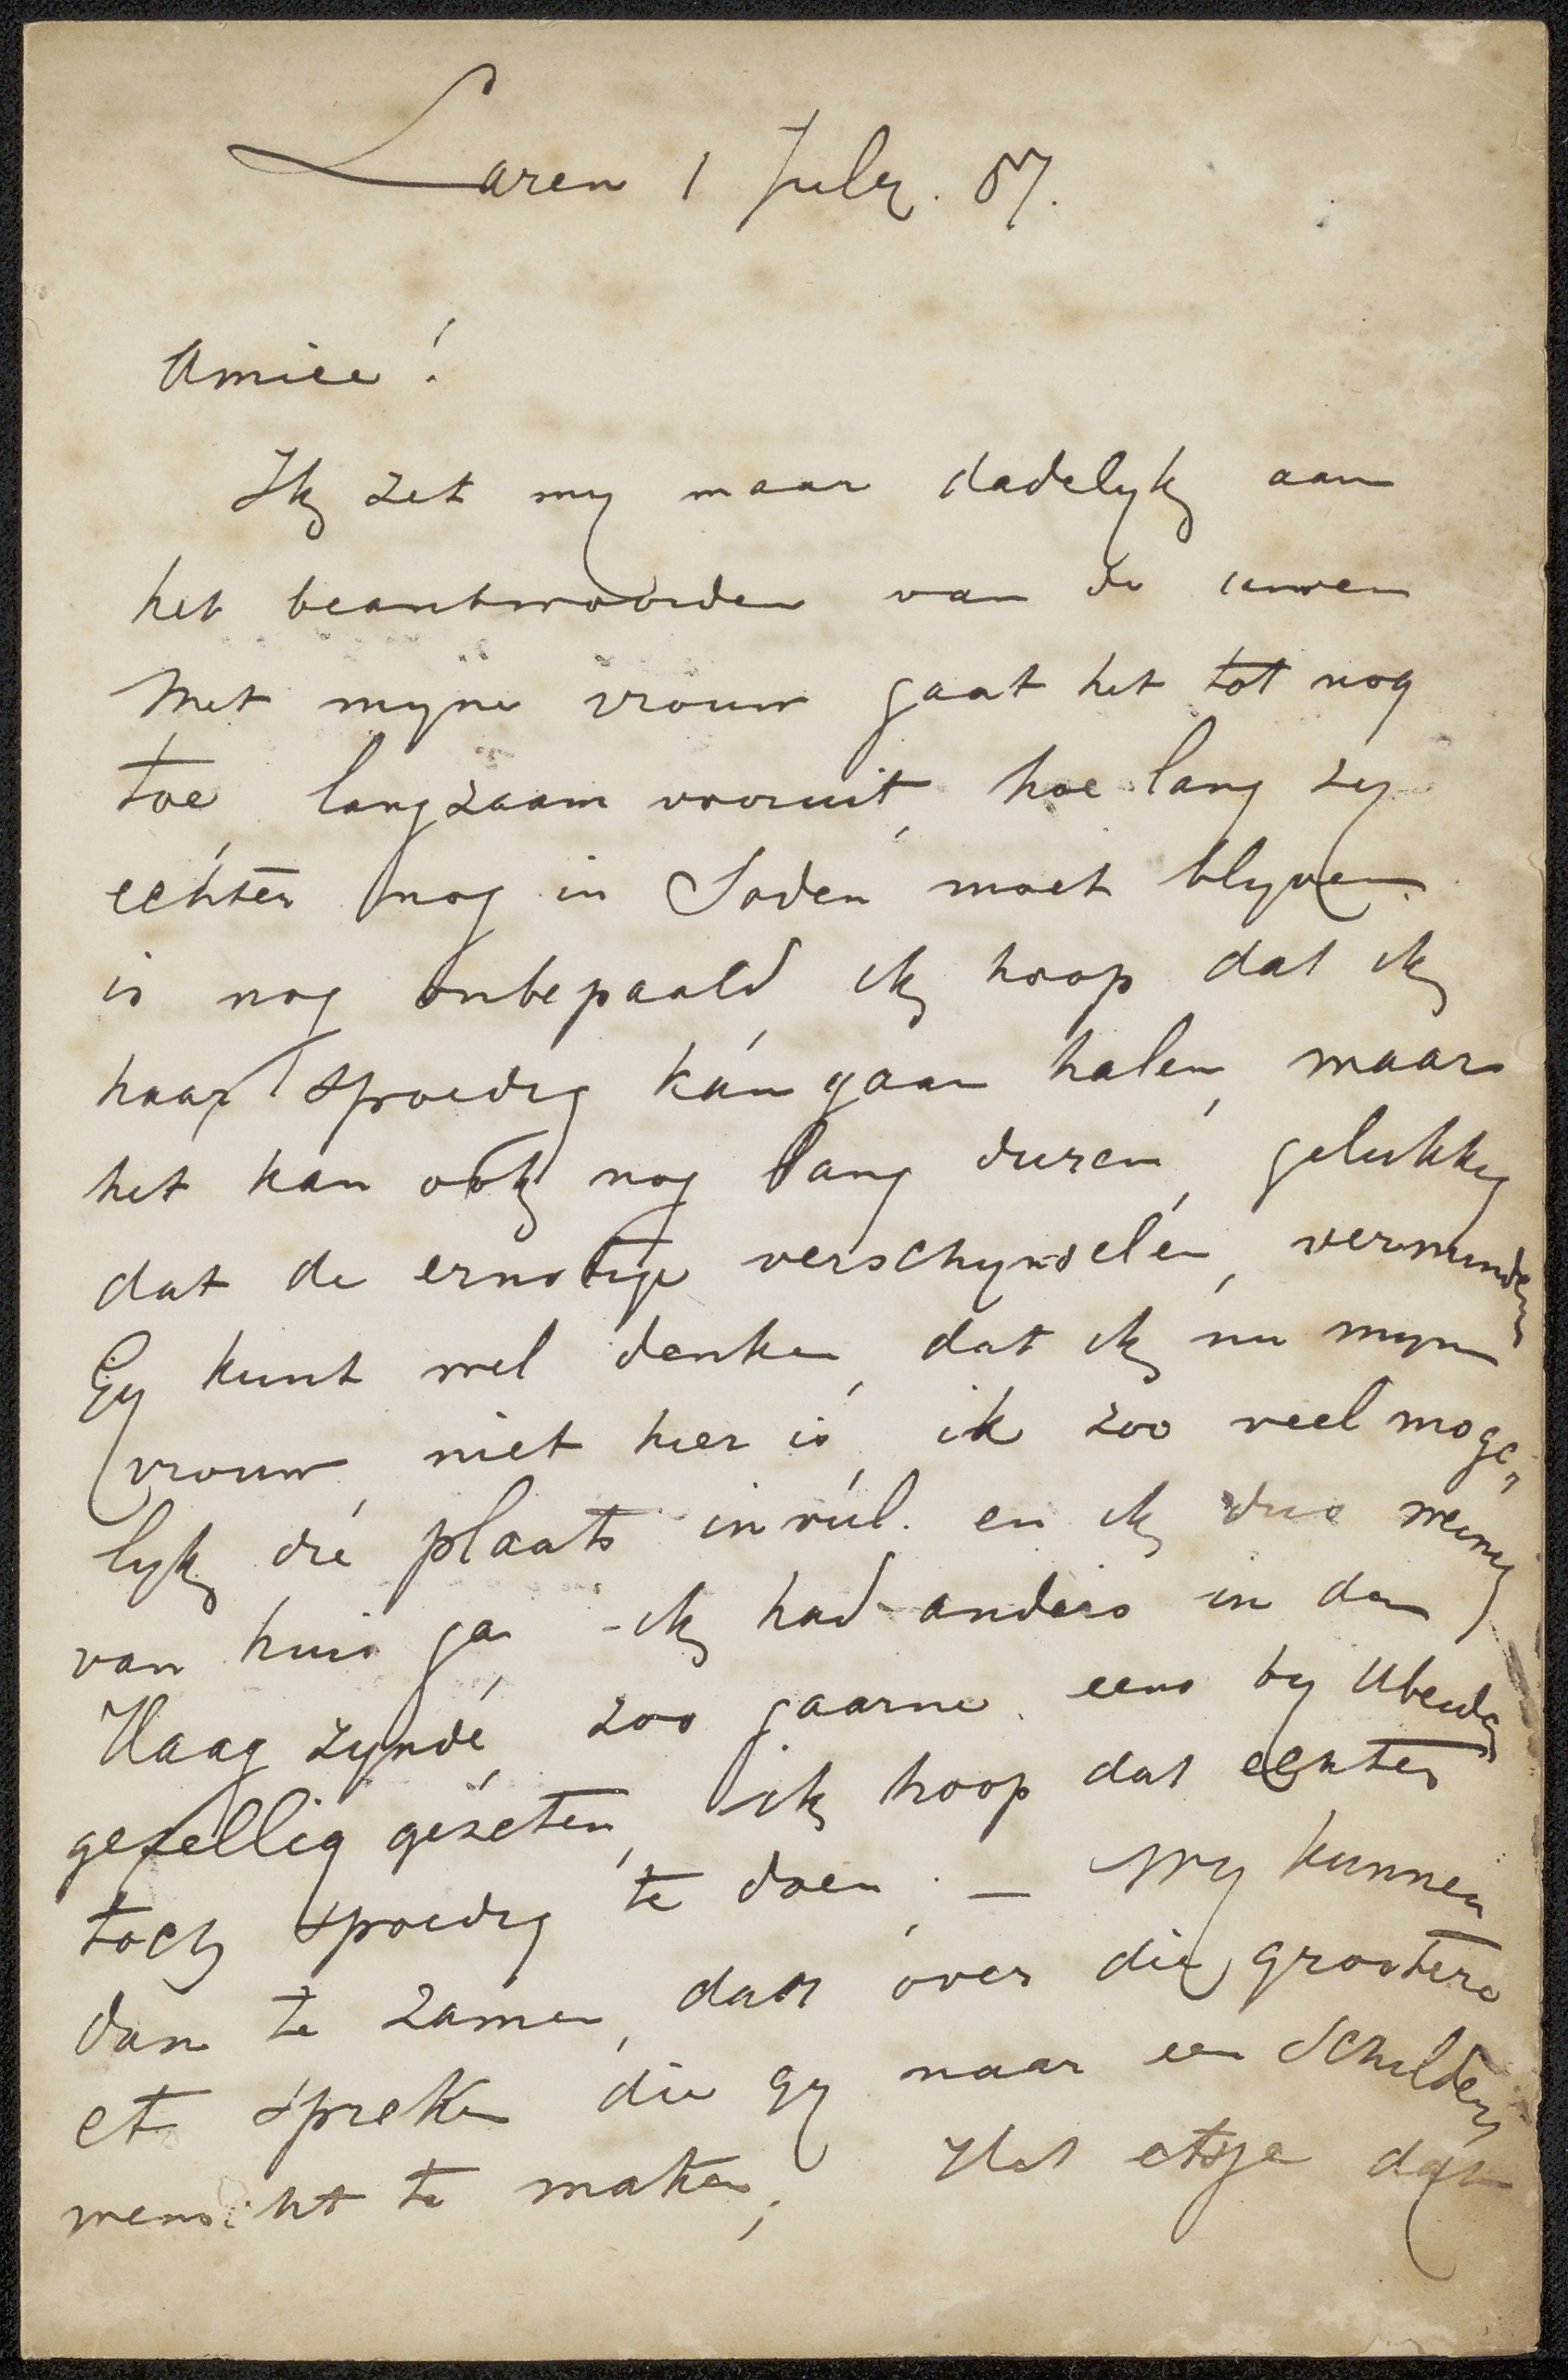 Laren 1 July. 87.
Amice!
Ik zet my maar dadelyk aan
het beantwoorden van de uwen
Met myne vrouw gaat het tot nog
toe, langzaam vooruit, hoe lang zy
echter nog in Soden moet blyven
is nog onbepaald, ik hoop dat ik
haar spoedig kan gaan halen, maar
het kan ook nog lang duren, gelukkig
dat de ernstige verschynselen, verminderen
Gy kunt wel denken, dat ik nu myn
vrouw niet hier is, ik zoo veel moge„
lyk die plaats invul. en ik dus weinig
van huis ga, - ik had anders in den
Haag zynde, zoo gaarne eens by U beide
gezellig gezeten, ik hoop dat echter
toch spoedig te doen. — Wy kunnen
dan te zamen, dan over die grootere
ets spreken die gy naar een Schildery
wenscht te maken; Het etsje dat